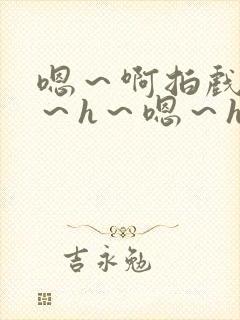 嗯～啊拍戏
～h～嗯～h
吉永勉